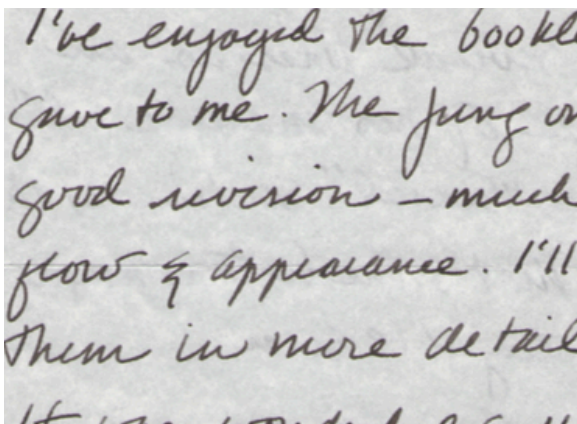 I've enjoyed the bookle
gave to me. The Jung on
good revision – much
flow & appearance. I'll
them in more detail